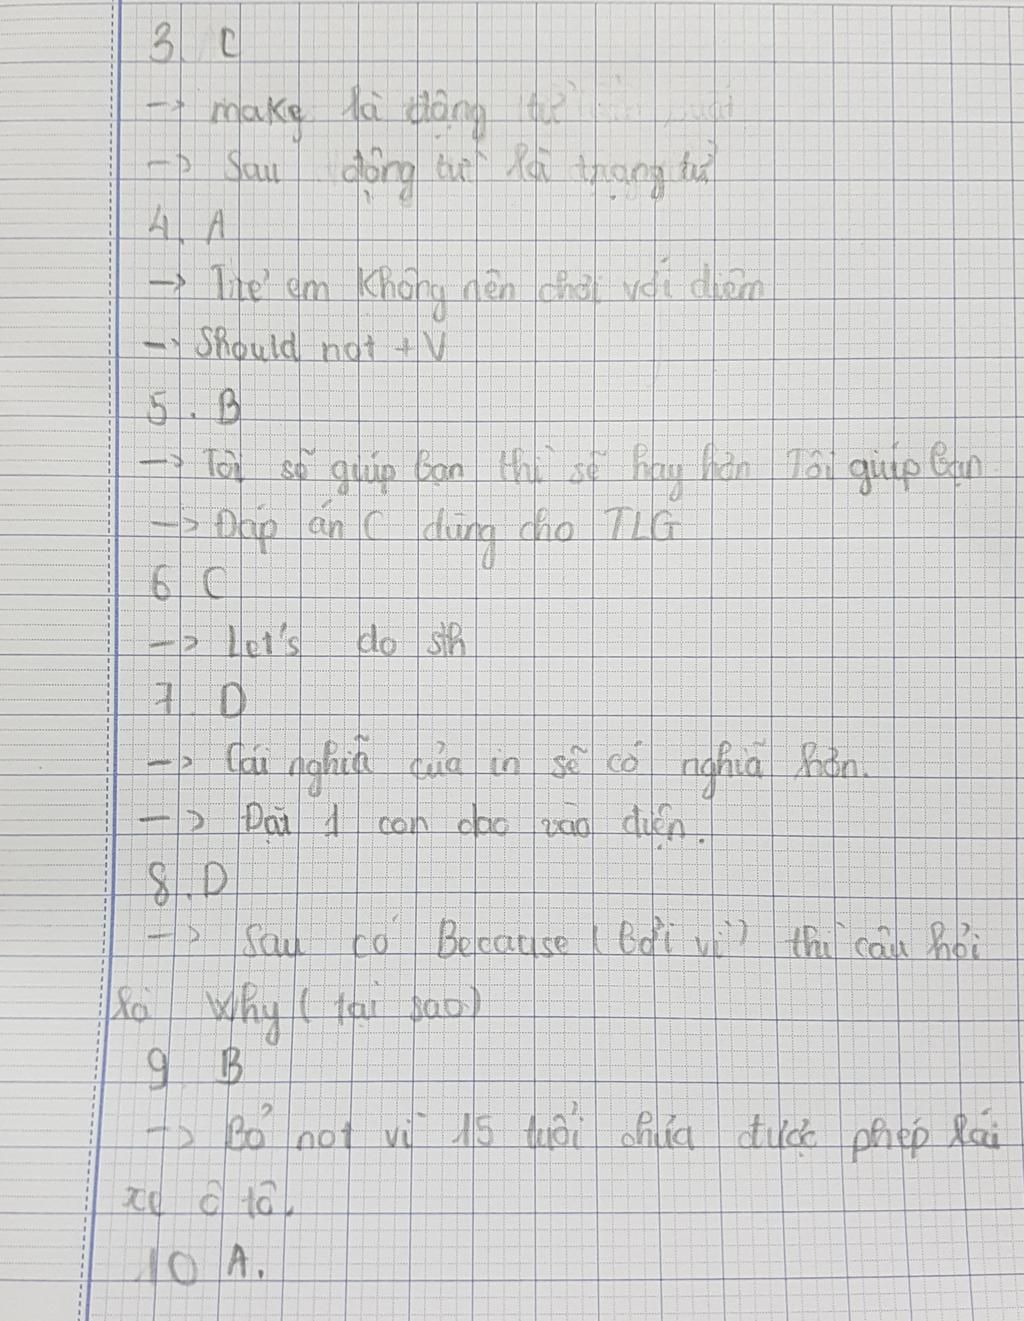 3 C
-> make là động từ
-> Sau động từ là trạng từ
4. A
-> Trẻ em không nên chơi với diêm
-> Should not + V
5. B
-> Tôi sẽ giúp bạn thì sẽ hay hơn Tôi giúp bạn
-> Đáp án C dùng cho TLG
6 C
-> Let's do sth
7 D
-> Cái nghiã của in sẽ có nghiã hơn.
-> 1 con dao vào điện.
8. D
-> Sau có Because (bởi vì) thì câu hỏi
là Why (tại sao)
9 B
-> Bỏ not vì 15 tuổi chưa được phép lái
xe ô tô.
10 A.